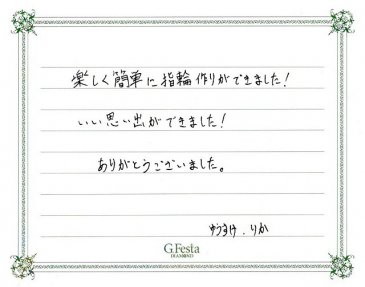 楽しく簡単に指輪作りができました！
いい思い出ができました！
ありがとうございました。
ゆうすけ．りか
G.Festa
DIAMOND